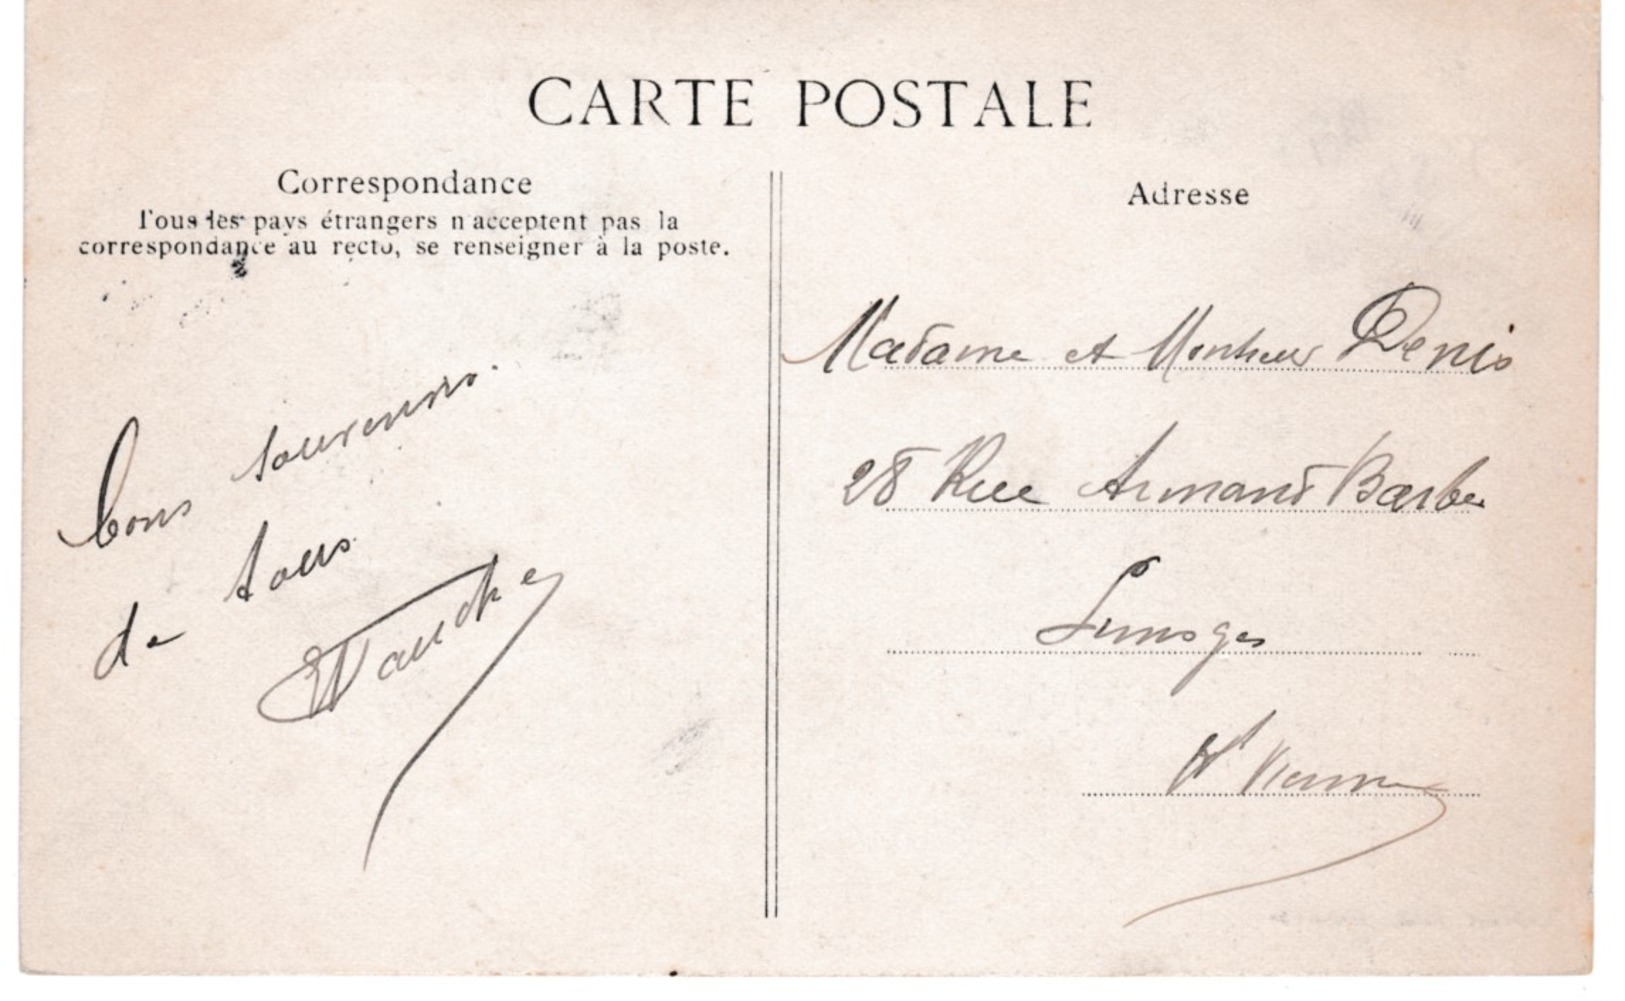 CARTE POSTALE
Correspondance
Tous les pays étrangers n'acceptent pas la
correspondance au recto, se renseigner à la poste.
bons souvenirs.
de tous
Adresse
Madame et Monsieur Denis
28 Rue Armand Barbes
Limoges
Hte Vienne